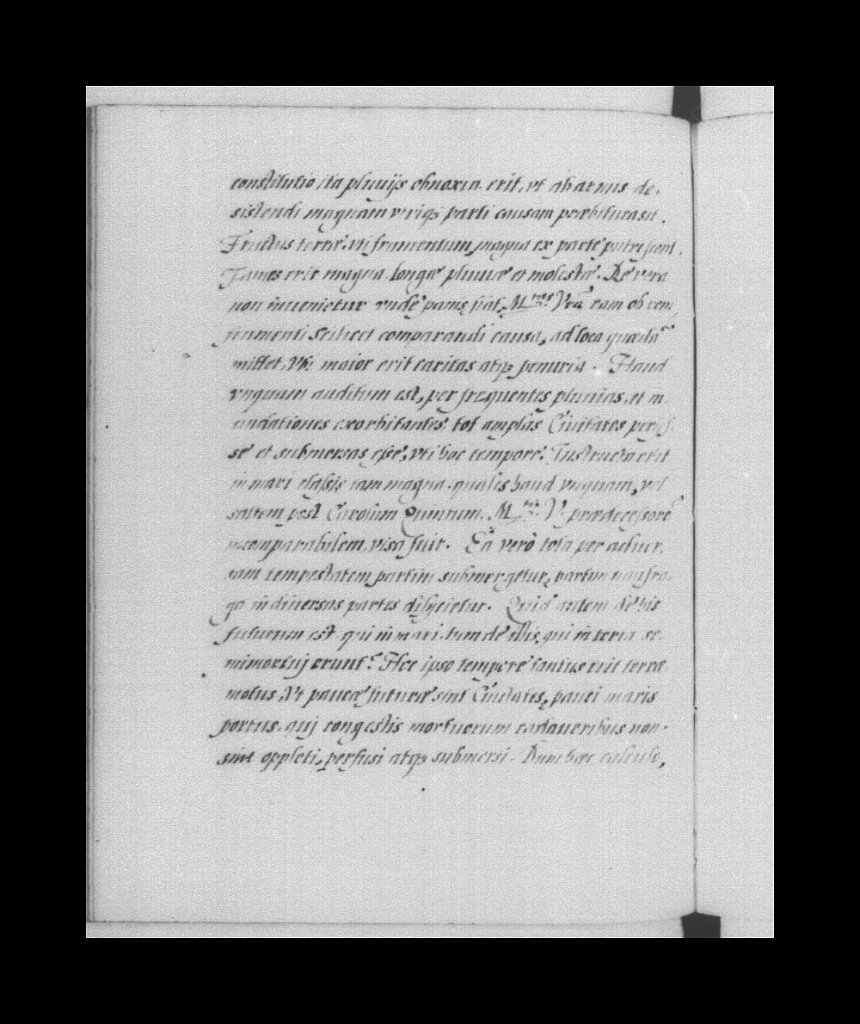 constitutio ita pluuijs obnoxia erit, vt ab armis de,
sistendi magnam vtriqꝫ parti causam præbitura sit.
Fructus terræ, vti frumentum magna ex parte putrescent.
Fames erit magna longæ pluuiæ et molestæ. De vera
non inuenietur vnde panis fiat, M.tas Vra. eam ob rem,
frumenti scilicet comparandi causa, ad loca quædã
mittet, vbi maior erit caritas atqꝫ penuria. Haud
vnquam auditum est, per frequentes pluuias, et in
undationes exorbitantes, tot amplas Ciuitates perijs
se et submersas esse, vti hoc tempore. Instructa erit
in mari classis tam magna, qualis haud vnquam, vel
saltem post Carolum Quintum, M.tis V. prædecessorẽ
incomparabilem, visa fuit. Ea verò tota per aduer,
sam tempestatem partim submergetur, partim naufra,
go in diuersas partes disijcietur. Quid autem de his
futurum est, qui in mari, tum de illis, qui in terra se,
mimortuj erunt? Hoc ipso tempore tantus erit terræ
motus, Vt paucæ futuræ sint Ciuitates, pauci maris
portus, quj congestis mortuorum cadaueribus non
sint oppleti, perfusi atqꝫ submersi. Dum hæc calculo,